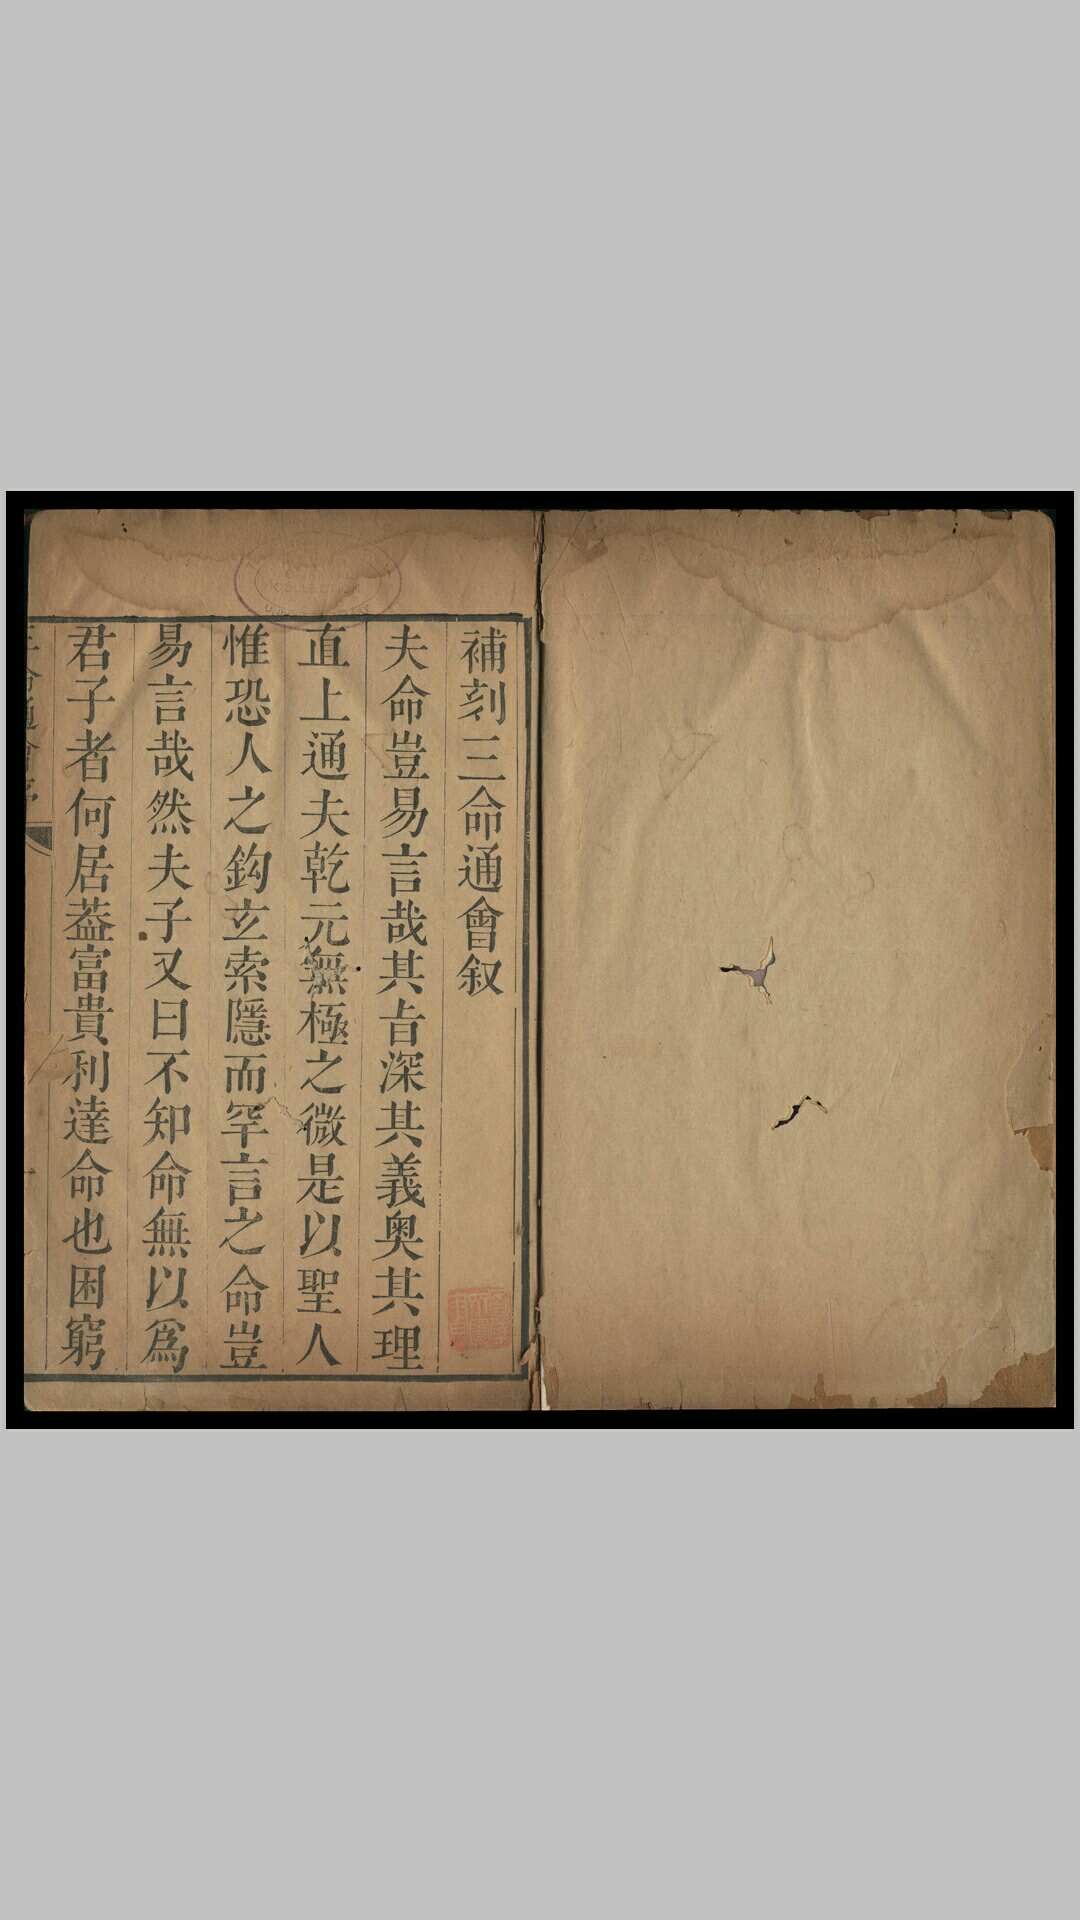 補刻三命通會叙
夫命豈易言哉其旨深其義奧其理
直上通夫乾元無極之微是以聖人
惟恐人之鈎玄索隱而罕言之命豈
易言哉然夫子又曰不知命無以爲
君子者何居葢富貴利達命也困窮